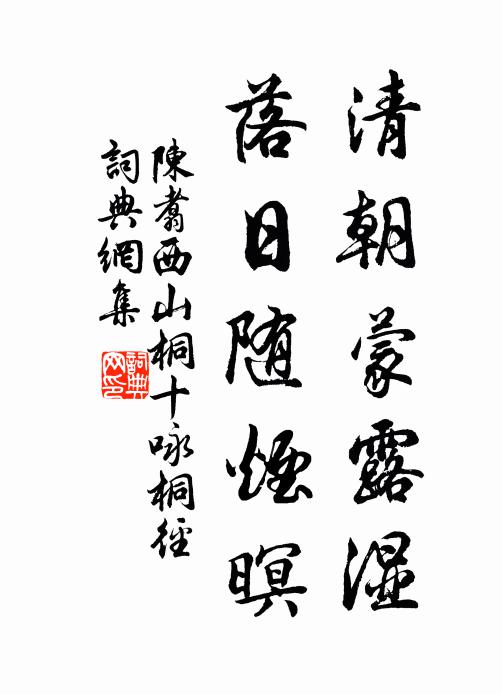 清朝蒙露湿
落日随煙暝
陳翥西山桐十咏桐徑
詞典網集
詞典网印